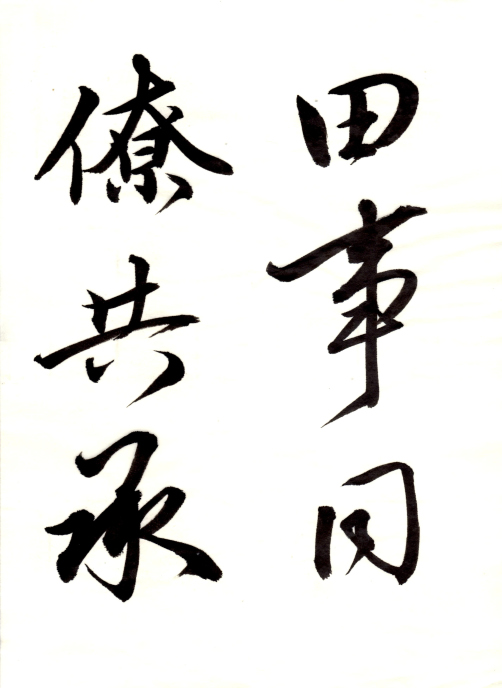 田事同
僚共承